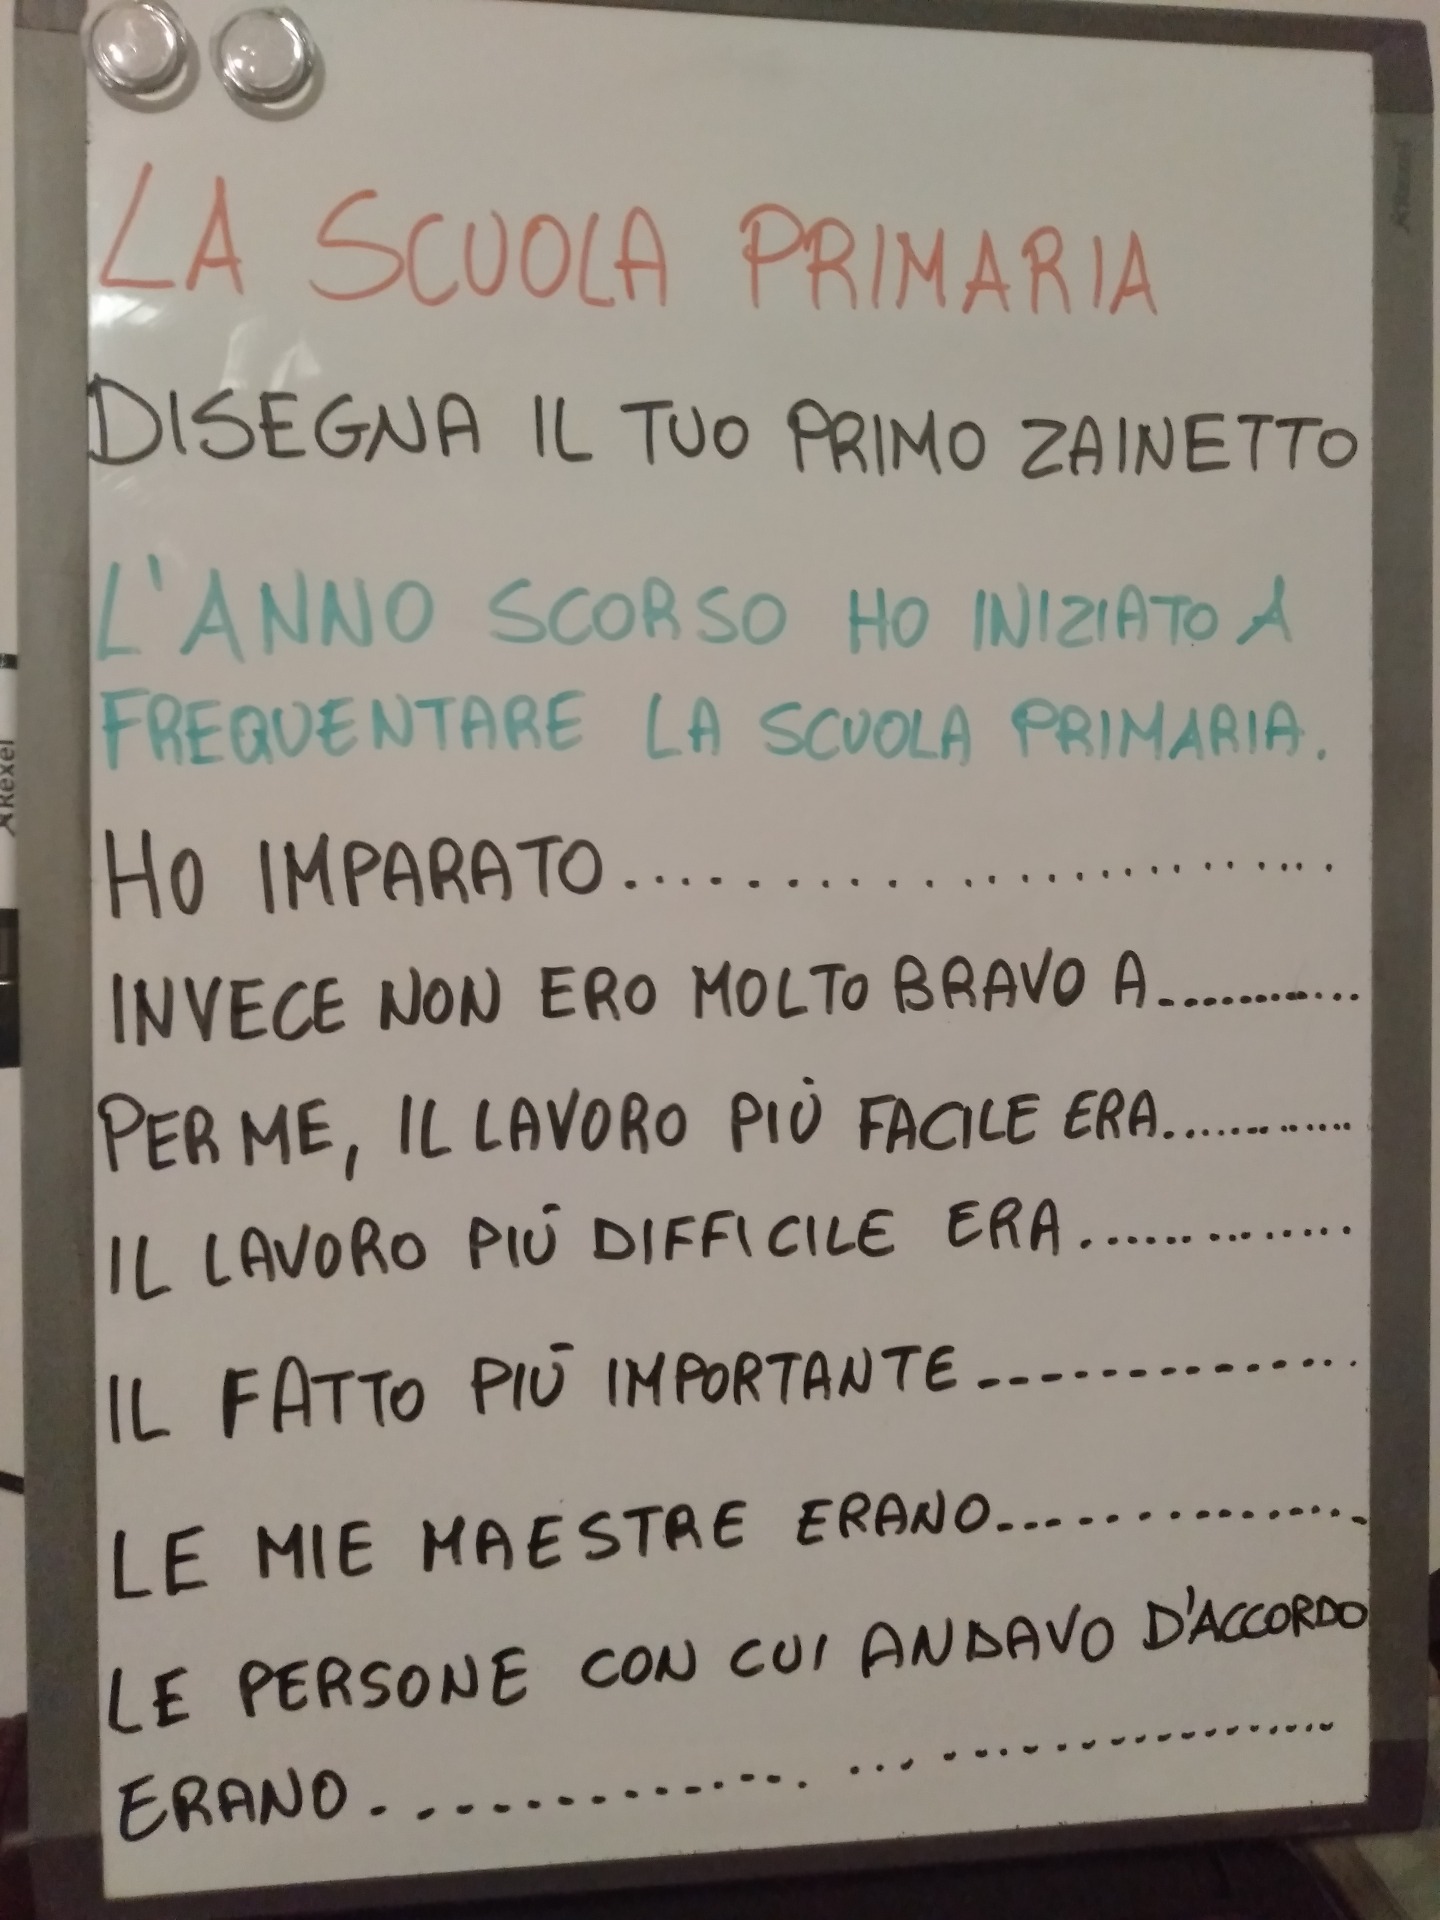 LA SCUOLA PRIMARIA
DISEGNA IL TUO PRIMO ZAINETTO
L'ANNO SCORSO HO INIZIATO A
FREQUENTARE LA SCUOLA PRIMARIA.
HO IMPARATO........................
INVECE NON ERO MOLTO BRAVO A............
PER ME, IL LAVORO PIÙ FACILE ERA.............
IL LAVORO PIÙ DIFFICILE ERA..............
IL FATTO PIÙ IMPORTANTE................
LE MIE MAESTRE ERANO.................
LE PERSONE CON CUI ANDAVO D'ACCORDO
ERANO....................................
Rexel